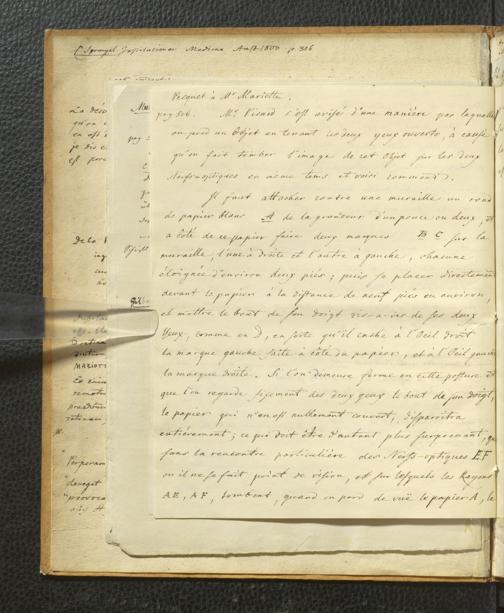 C. Sprengel. Institutiones Medicae Amst. 1800 p. 306
Pecquet à Mr Mariotte.
pag 506. Mr. Picard s'est avisé d'une manière par laquelle
on perd un Objet en tenant les deux yeux ouverts, à cause
qu'on fait tomber l'image de cet objet sur les deux
Nerfs-optiques en même tems et voici comment.
Il faut attacher contre une muraille un rond
de papier blanc A de la grosseur d'un pouce ou deux, et
à côté de ce papier faire deux marques B C sur la
muraille l'une à droite et l'autre à gauche, chacune
éloignée d'environ deux piés; puis se placer directement
devant le papier à la distance de neuf piés ou environ,
et mettre le bout de son doigt vis-à-vis de ses deux
Yeux, comme en D, en sorte qu'il cache à l'Oeil droit
la marque gauche faite à côté du papier, et à l'Oeil gauche
la marque droite. Si l'on demeure ferme en cette posture et
que l'on regarde fixement des deux yeux le bout de son doigt,
le papier qui n'en est nullement couvert, disparoîtra
entiérement; ce qui doit être d'autant plus surprenant, que
sans la rencontre particulière des Nerfs-optiques E F
où il ne se fait point de vision, et sur lesquels les Rayons
A E, A F, tombent, quand on perd de vuë le papier A, le
MARIOTT
Perperam
deneget
provoca